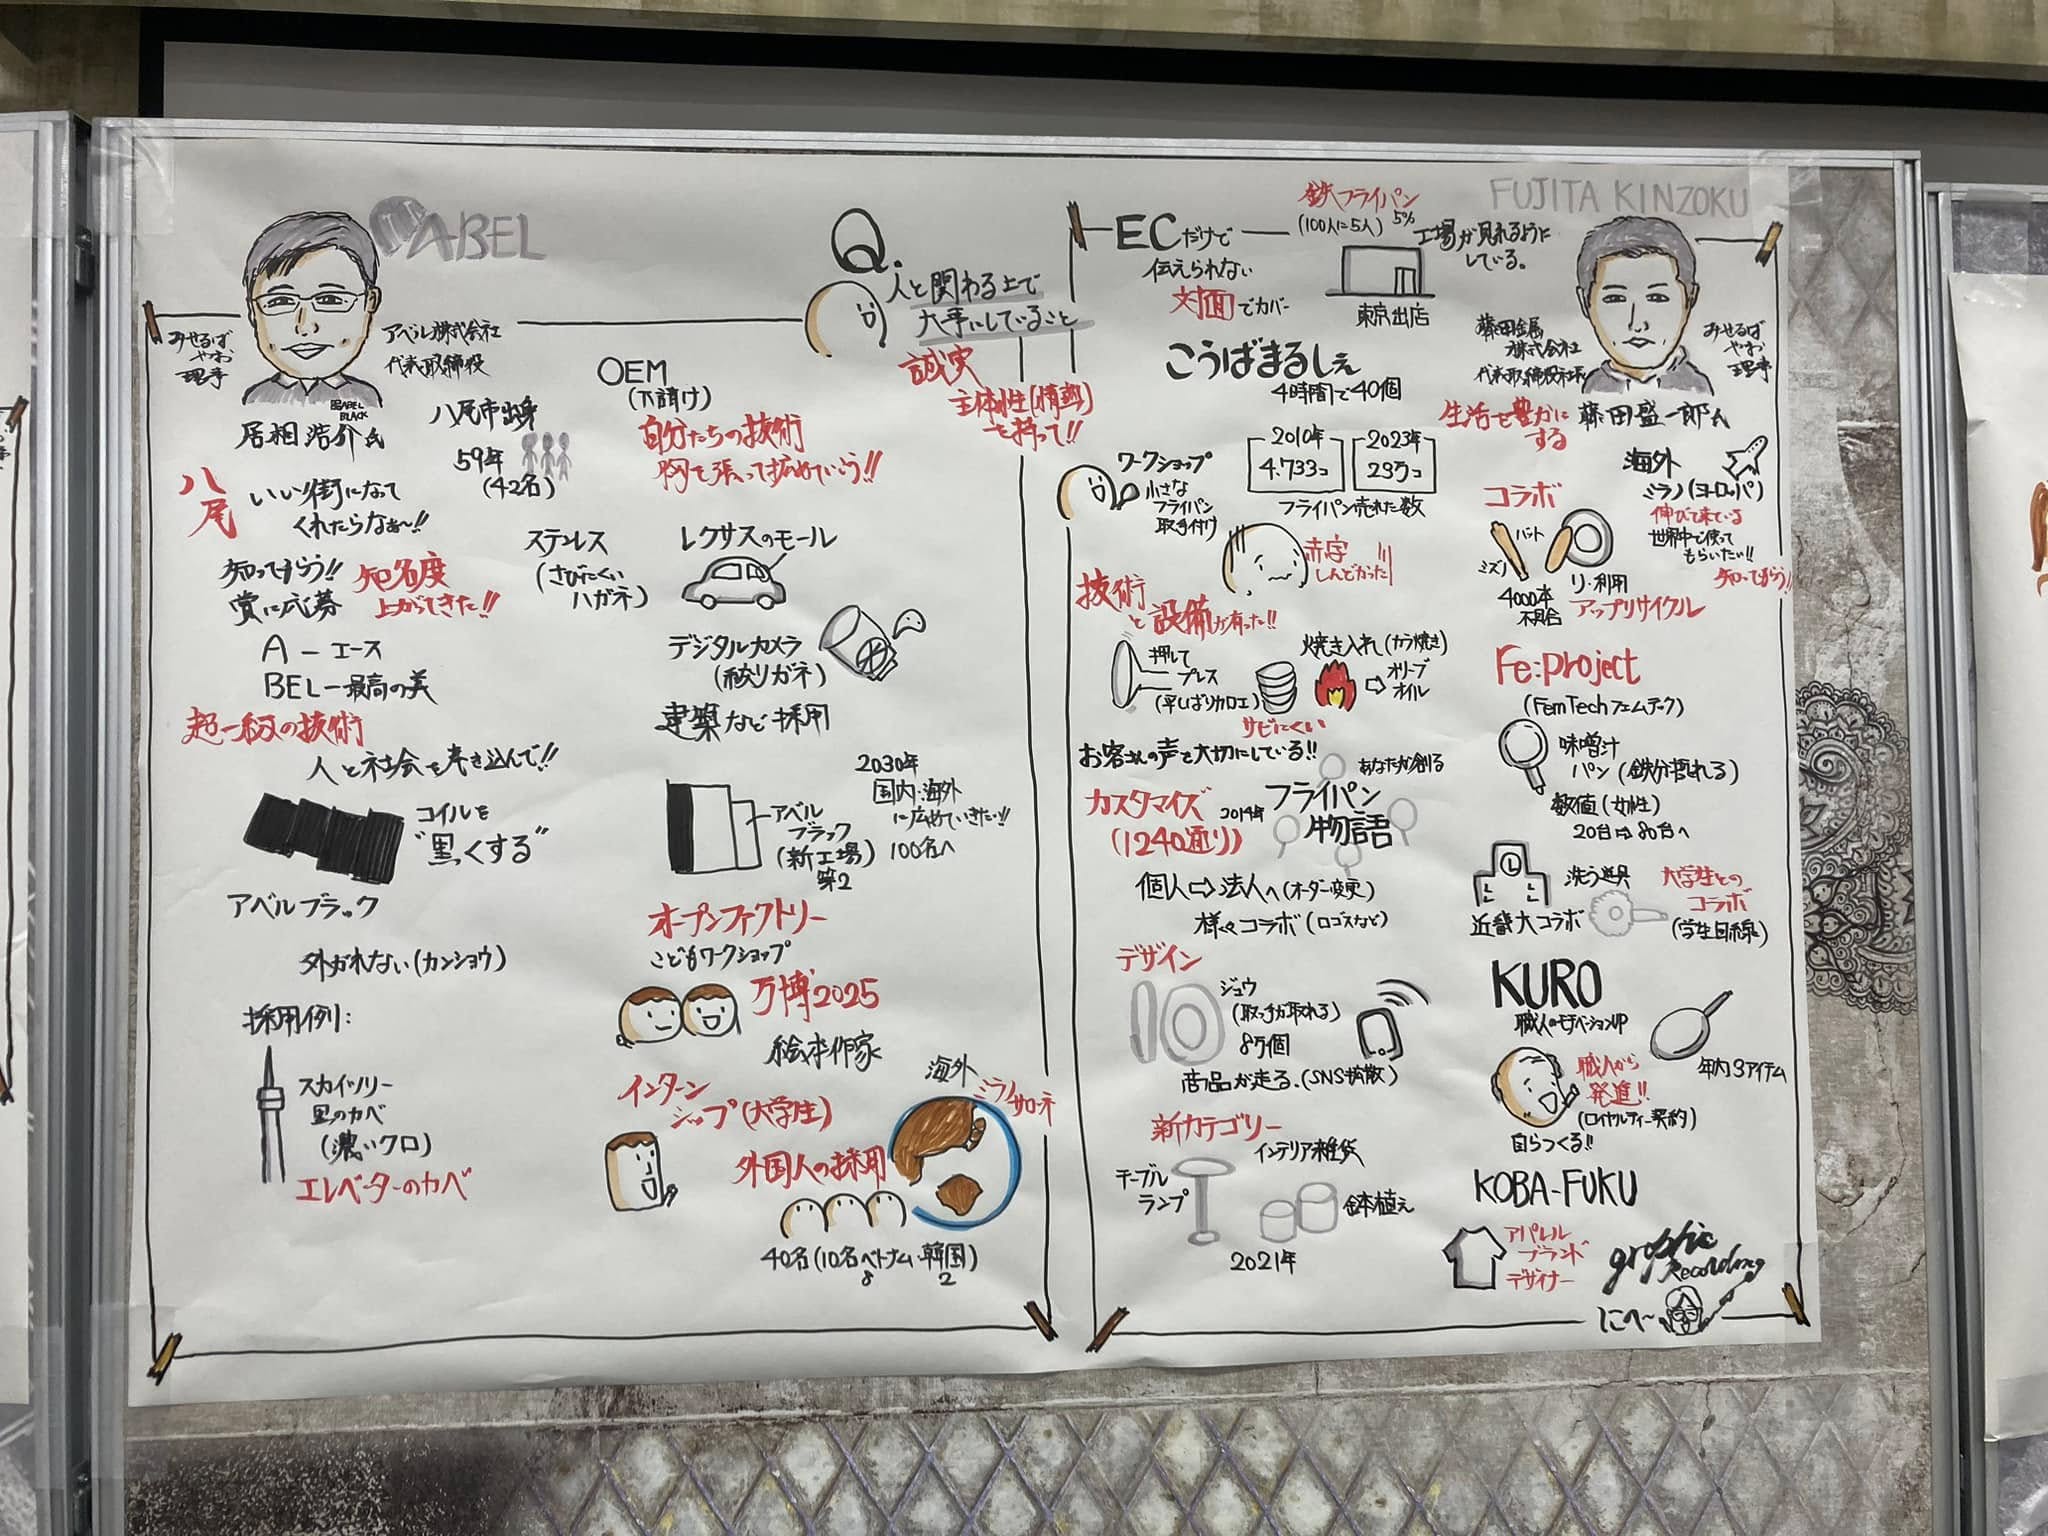 ABEL
みせるば
やお
理事
アベル株式会社
代表取締役
ABEL
BLACK
居相浩介氏
八尾市出身
59年
(42名)
八尾
いい街になって
くれたらなぁ〜!!
知ってもらう!!
賞に応募
知名度
上がってきた!!
A-エース
BEL-最高の美
超一級の技術
人と社会を巻き込んで!!
コイルを
"黒くする"
アベルブラック
外がれない(カンショウ)
採用例:
スカイツリー
黒のカベ
(濃いクロ)
エレベーターのカベ
OEM
(下請け)
自分たちの技術
胸を張って拡めていこう!!
ステンレス
(さびにくい
ハガネ)
レクサスのモール
デジタルカメラ
(絞りガネ)
建築など採用
アベル
ブラック
(新工場)
第2
2030年
国内・海外
に広めていきたい!!
100名へ
オープンファクトリー
こどもワークショップ
万博2025
絵本作家
インターン
シップ(大学生)
海外
ミラノ
サローネ
外国人の採用
40名(10名ベトナム・韓国)
8 2
Q.
人と関わる上で
大事にしていること
誠実
主体性(情熱)
を持って!!
FUJITA KINZOKU
ECだけで
伝えられない
対面でカバー
鉄フライパン
(100人に5人) 5%
東京出店
工場が見れるように
している。
藤田金属
株式会社
代表取締役社長
みせるば
やお
理事
藤田盛一郎氏
生活を豊かに
する
こうばまるしぇ
4時間で40個
ワークショップ
小さな
フライパン
取手付け
2010年
4.733コ
2023年
23万コ
フライパン売れた数
赤字
しんどかった
技術
と設備が有った!!
押して
プレス
(平しぼりカロエ)
焼き入れ(カラ焼き)
オリーブ
オイル
サビにくい
お客さんの声を大切にしている!!
カスタマイズ
(1240通り)
2014年
あなたが創る
フライパン
物語
個人⇨法人へ(オーダー変更)
様々コラボ(ロゴスなど)
デザイン
ジュウ
(取っ手が取れる)
8万個
商品が走る.(SNS拡散)
新カテゴリー
インテリア雑貨
テーブル
ランプ
鉢植え
2021年
海外
ミラノ(ヨーロッパ)
伸びて来ている
世界中で使って
もらいたい!!
知ってもらう!!
コラボ
バット
ミズノ
4000本
不具合
リ・利用
アップリサイクル
Fe:project
(FemTechフェムテック)
味噌汁
パン(鉄分摂れる)
数値(女性)
20台⇨80台へ
近畿大コラボ
洗う道具
大学生との
コラボ
(学生目線)
KURO
職人のモチベーションUP
年内3アイテム
職人から
発進!!
(ロイヤルティー契約)
自らつくる!!
KOBA-FUKU
アパレル
ブランド
デザイナー
graphic
Recording
にへ〜